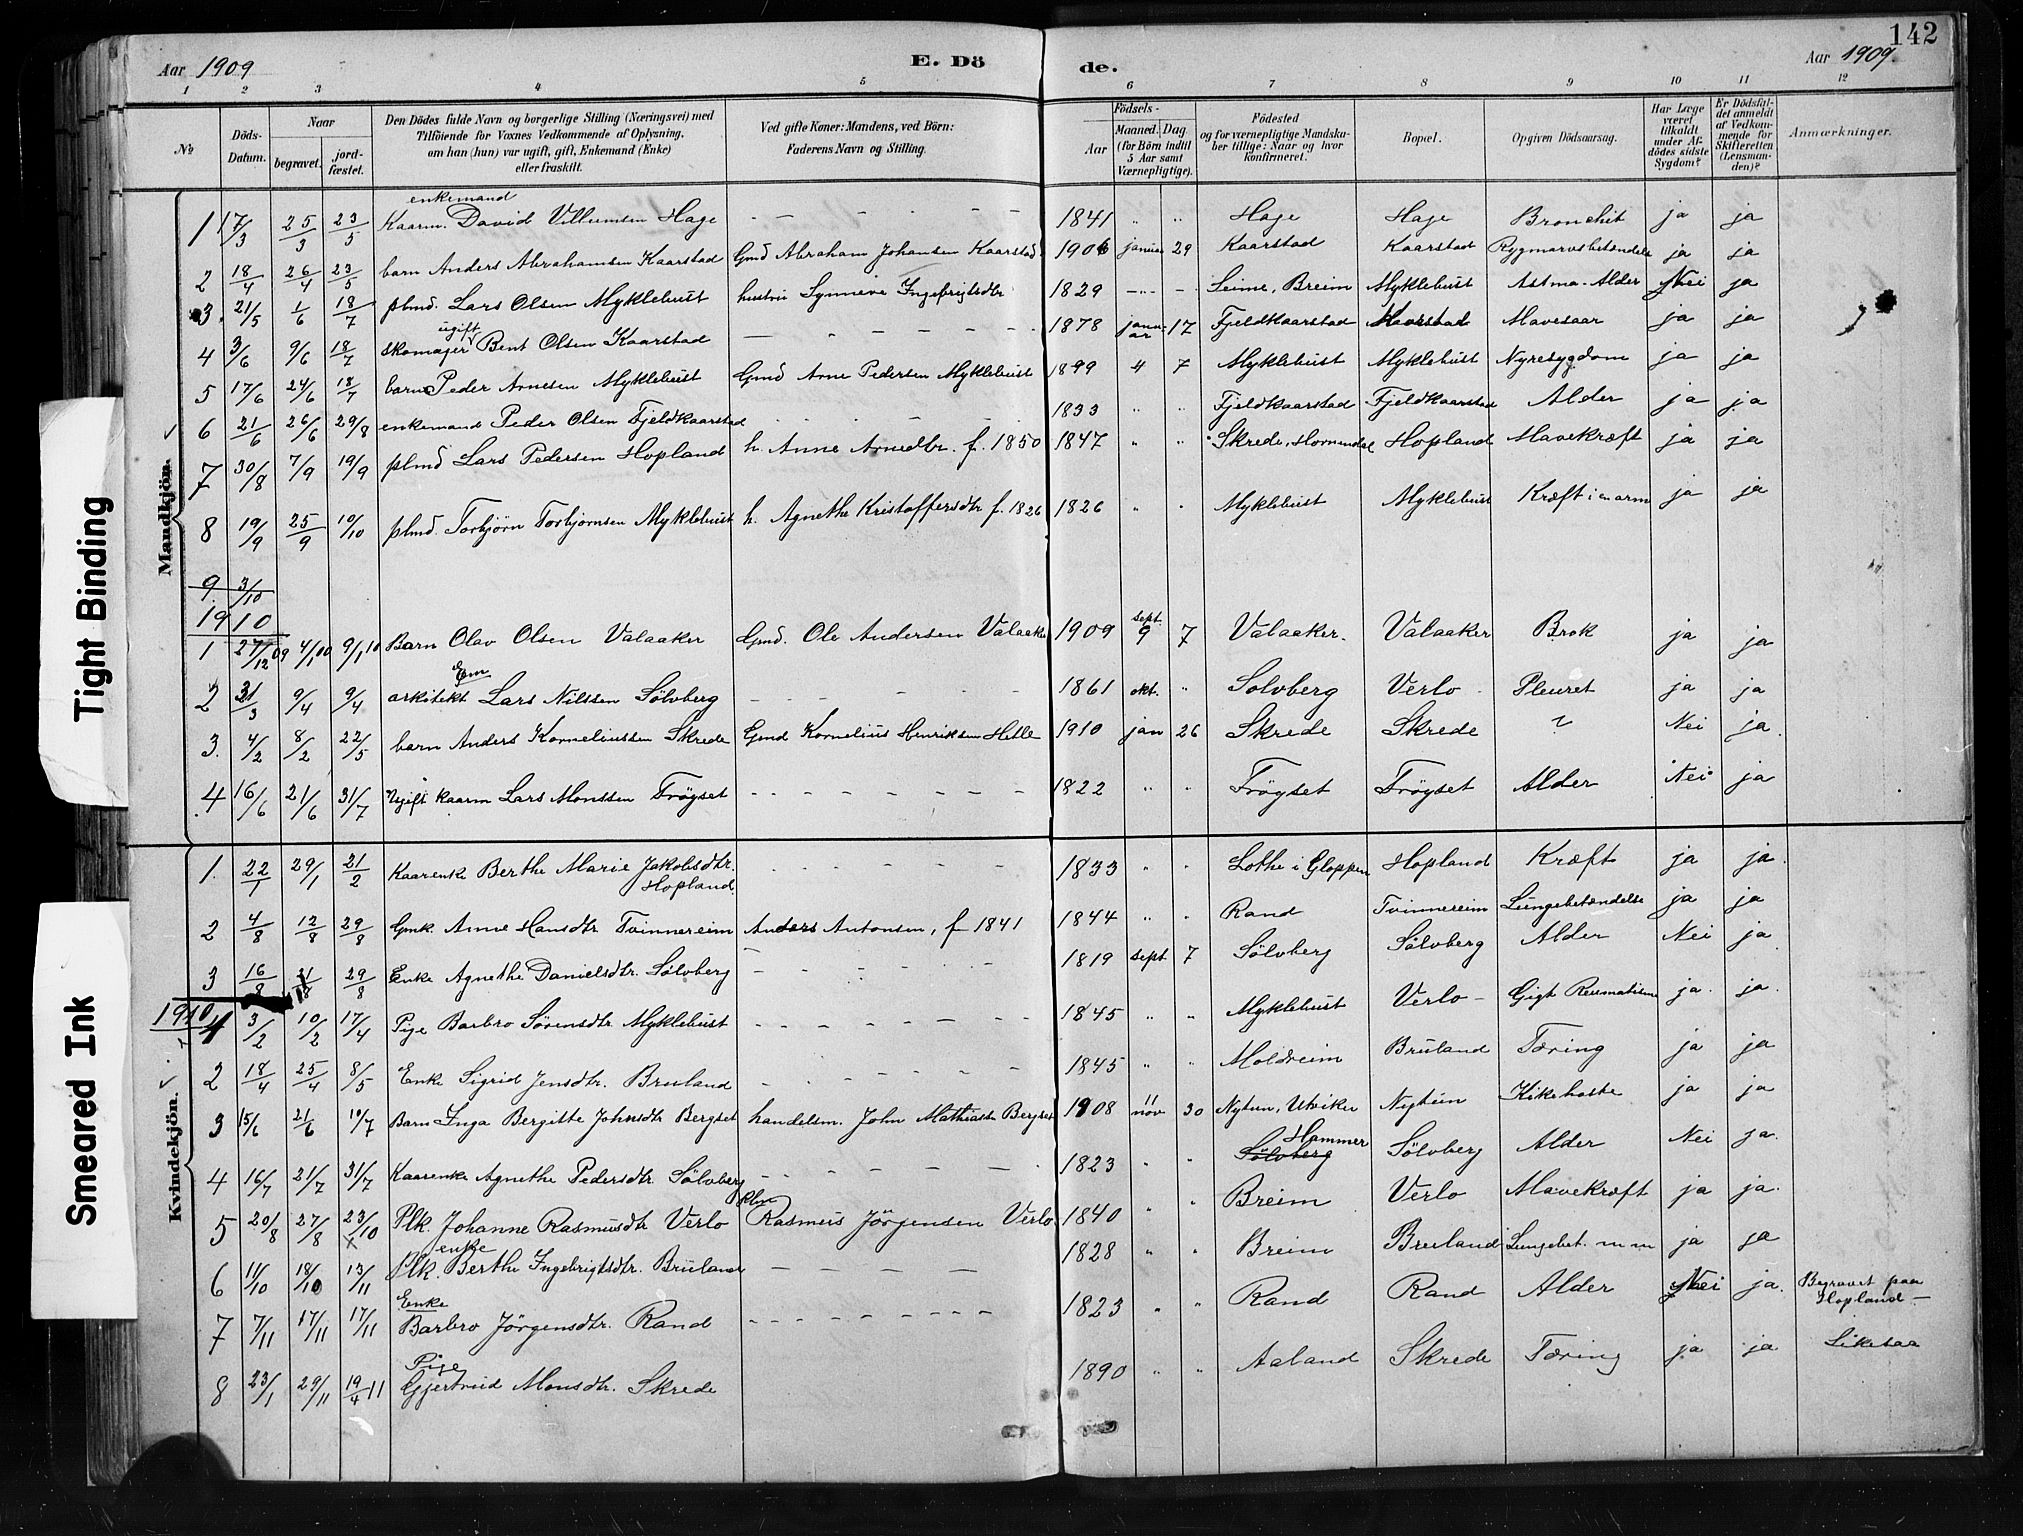 142
Aar 1909
E. Dö
de.
Aar 1909.
1 2 3 4 5 6 7 8 9 10 11 12
No
Döds-Datum.
Naar
begravet.
jord-fæstet.
Den Dödes fulde Navn og borgerlige Stilling (Næringsvei) med
Tilföiende for Voxnes Vedkommende af Oplysning,
om han (hun) var ugift, gift, Enkemand (Enke)
eller fraskilt.
Ved gifte Koner: Mandens, ved Börn:
Faderens Navn og Stilling.
Födsels-
Aar
Maaned. Dag
(for Börn indtil
5 Aar samt
Værnepligtige).
Födested
og for værnepligtige Mandska-
ber tillige: Naar og hvor
konfirmeret.
Bopel.
Opgiven Dödsaarsag.
Har Læge
været
tilkaldt
under Af-
dödes sidste
Sygdom?
Er Dödsfal-
det anmeldt
af Vedkom-
mende for
Skifteretten
(Lensman-
den)?
Anmærkninger.
Mandkjön.
enkemand
1 17/3 25/3 23/5 Kaarm. David Villumsen Hage - - - - - 1841 " " Hage Hage Bronchit ja ja
2 18/4 26/4 23/5 barn Anders Abrahamsen Kaarstad Gmd Abraham Johansen Kaarstad 1906 januar 29 Kaarstad Kaarstad Rygmarvsbetændelse ja ja
3 21/5 1/6 18/7 plmd. Lars Olsen Myklebust hustru Synneve Ingebrigtsdtr 1829 - - Seime, Breim Myklebust Astma-Alder Nei ja
ugift
4 3/6 9/6 18/7 skomager Bent Olsen Kaarstad - - - - - 1878 januar 17 Fjeldkaarstad Kaarstad Mavesaar ja ja
5 17/6 24/6 18/7 barn Peder Arnesen Myklebust Gmd Arne Pedersen Myklebust 1899 4 7 Myklebust Myklebust Nyresygdom ja ja
6 21/6 26/6 29/8 enkemand Peder Olsen Fjeldkaarstad 1833 " " Fjeldkaarstad Fjeldkaarstad Alder ja ja
7 30/8 7/9 19/9 plmd Lars Pedersen Hopland h. Anne Arnedtr. f. 1850 1847 " " Skrede, Hornindal Hopland Mavekræft ja ja
8 19/9 25/9 10/10 plmd. Torbjørn Torbjørnsen Myklebust h. Agnethe Kristoffersdtr f. 1826 1826 " " Myklebust Myklebust Kræft i en arm ja ja
9. 3/10
1910
1 27/12 09 4/1 00 9/1 10 Barn Olav Olsen Valaaker Gmd. Ole Andersen Valaaker 1909 sept. 9 7 Valaaker. Valaaker Brok ja ja
Em
2 31/3 9/4 9/4 arkitekt Lars Nilssen Sölvberg - - - - 1861 okt. " Solvberg Verlo Pleuret ja ja
3. 4/2 8/2 22/5 barn Anders Korneliussen Skrede Gmd Kornelius Henriksen Helle 1910 jan 26 Skrede Skrede ? Nei ja.
4 16/6 21/6 31/7 Ugift kaarm Lars Monssen Tröyset - - - - - 1822 " " Tröyset Tröyset Alder Nei ja
Kvindekjön.
1. 22/1 29/1 21/2 Kaarenke Berthe Marie Jakobsdtr. Hopland. - - - - 1833 " " Lothe i Gloppen Hopland Kræft ja ja.
2 4/8 12/8 29/8 Gmk. Anne Hansdtr Tvinnereim Anders Antonsen, f 1841 1844 " " Rand Tvinnereim Lungebetændelse ja ja
3 16/8 21/8 29/8 Enke Agnethe Danielsdtr. Sölvberg - - - - 1819 sept 7 Sölvberg Sölvberg Alder Nei ja
1910
1 3/2 10/2 17/4 Pige Barbro Sörensdtr. Myklebust - - - - - 1845 " " Myklebust Verlo - Gigt Reumatisme ja. ja.
2 18/4 25/4 8/5 Enke Sigrid Jensdtr. Bruland - - - - 1845 " " Moldreim Bruland Tæring ja ja
3 15/6 21/6 10/7 Barn Inga Bergitte Johnsdtr Bergset handelsm. John Mathiassen Bergset 1908 11 nov 30 Nytun, Utviken Nytun Kikhoste ja ja
4 16/7 21/7 31/7 Kaarenke Agnethe Pedersdtr Sölvberg - - - - 1823 " " Hammer Sölvberg Sölvberg Alder Nei ja.
5 20/8 27/8 23/10 x Plk. Johanne Rasmusdtr Verlo Plm Rasmus Jörgensen Verlo 1840 " " Breim Verlo Mavekræft ja ja.
enke
6 11/10 18/10 13/11 Plk. Berthe Ingebrigtsdtr. Bruland - - - - - 1828 " " Breim Bruland Lungebet. m m ja ja
Enke
7 7/11 17/11 17/11 Barbro Jörgensdtr. Rand - - - - - 1823 " " Rand Rand Alder Nei ja. Begravet paa Hopland -
Pige
8 23/1 29/11 19/4 11 Gjertrud Monsdtr. Skrede 1890 " " Aaland Skrede Tæring ja ja Likesaa
Tight Binding
Smeared Ink